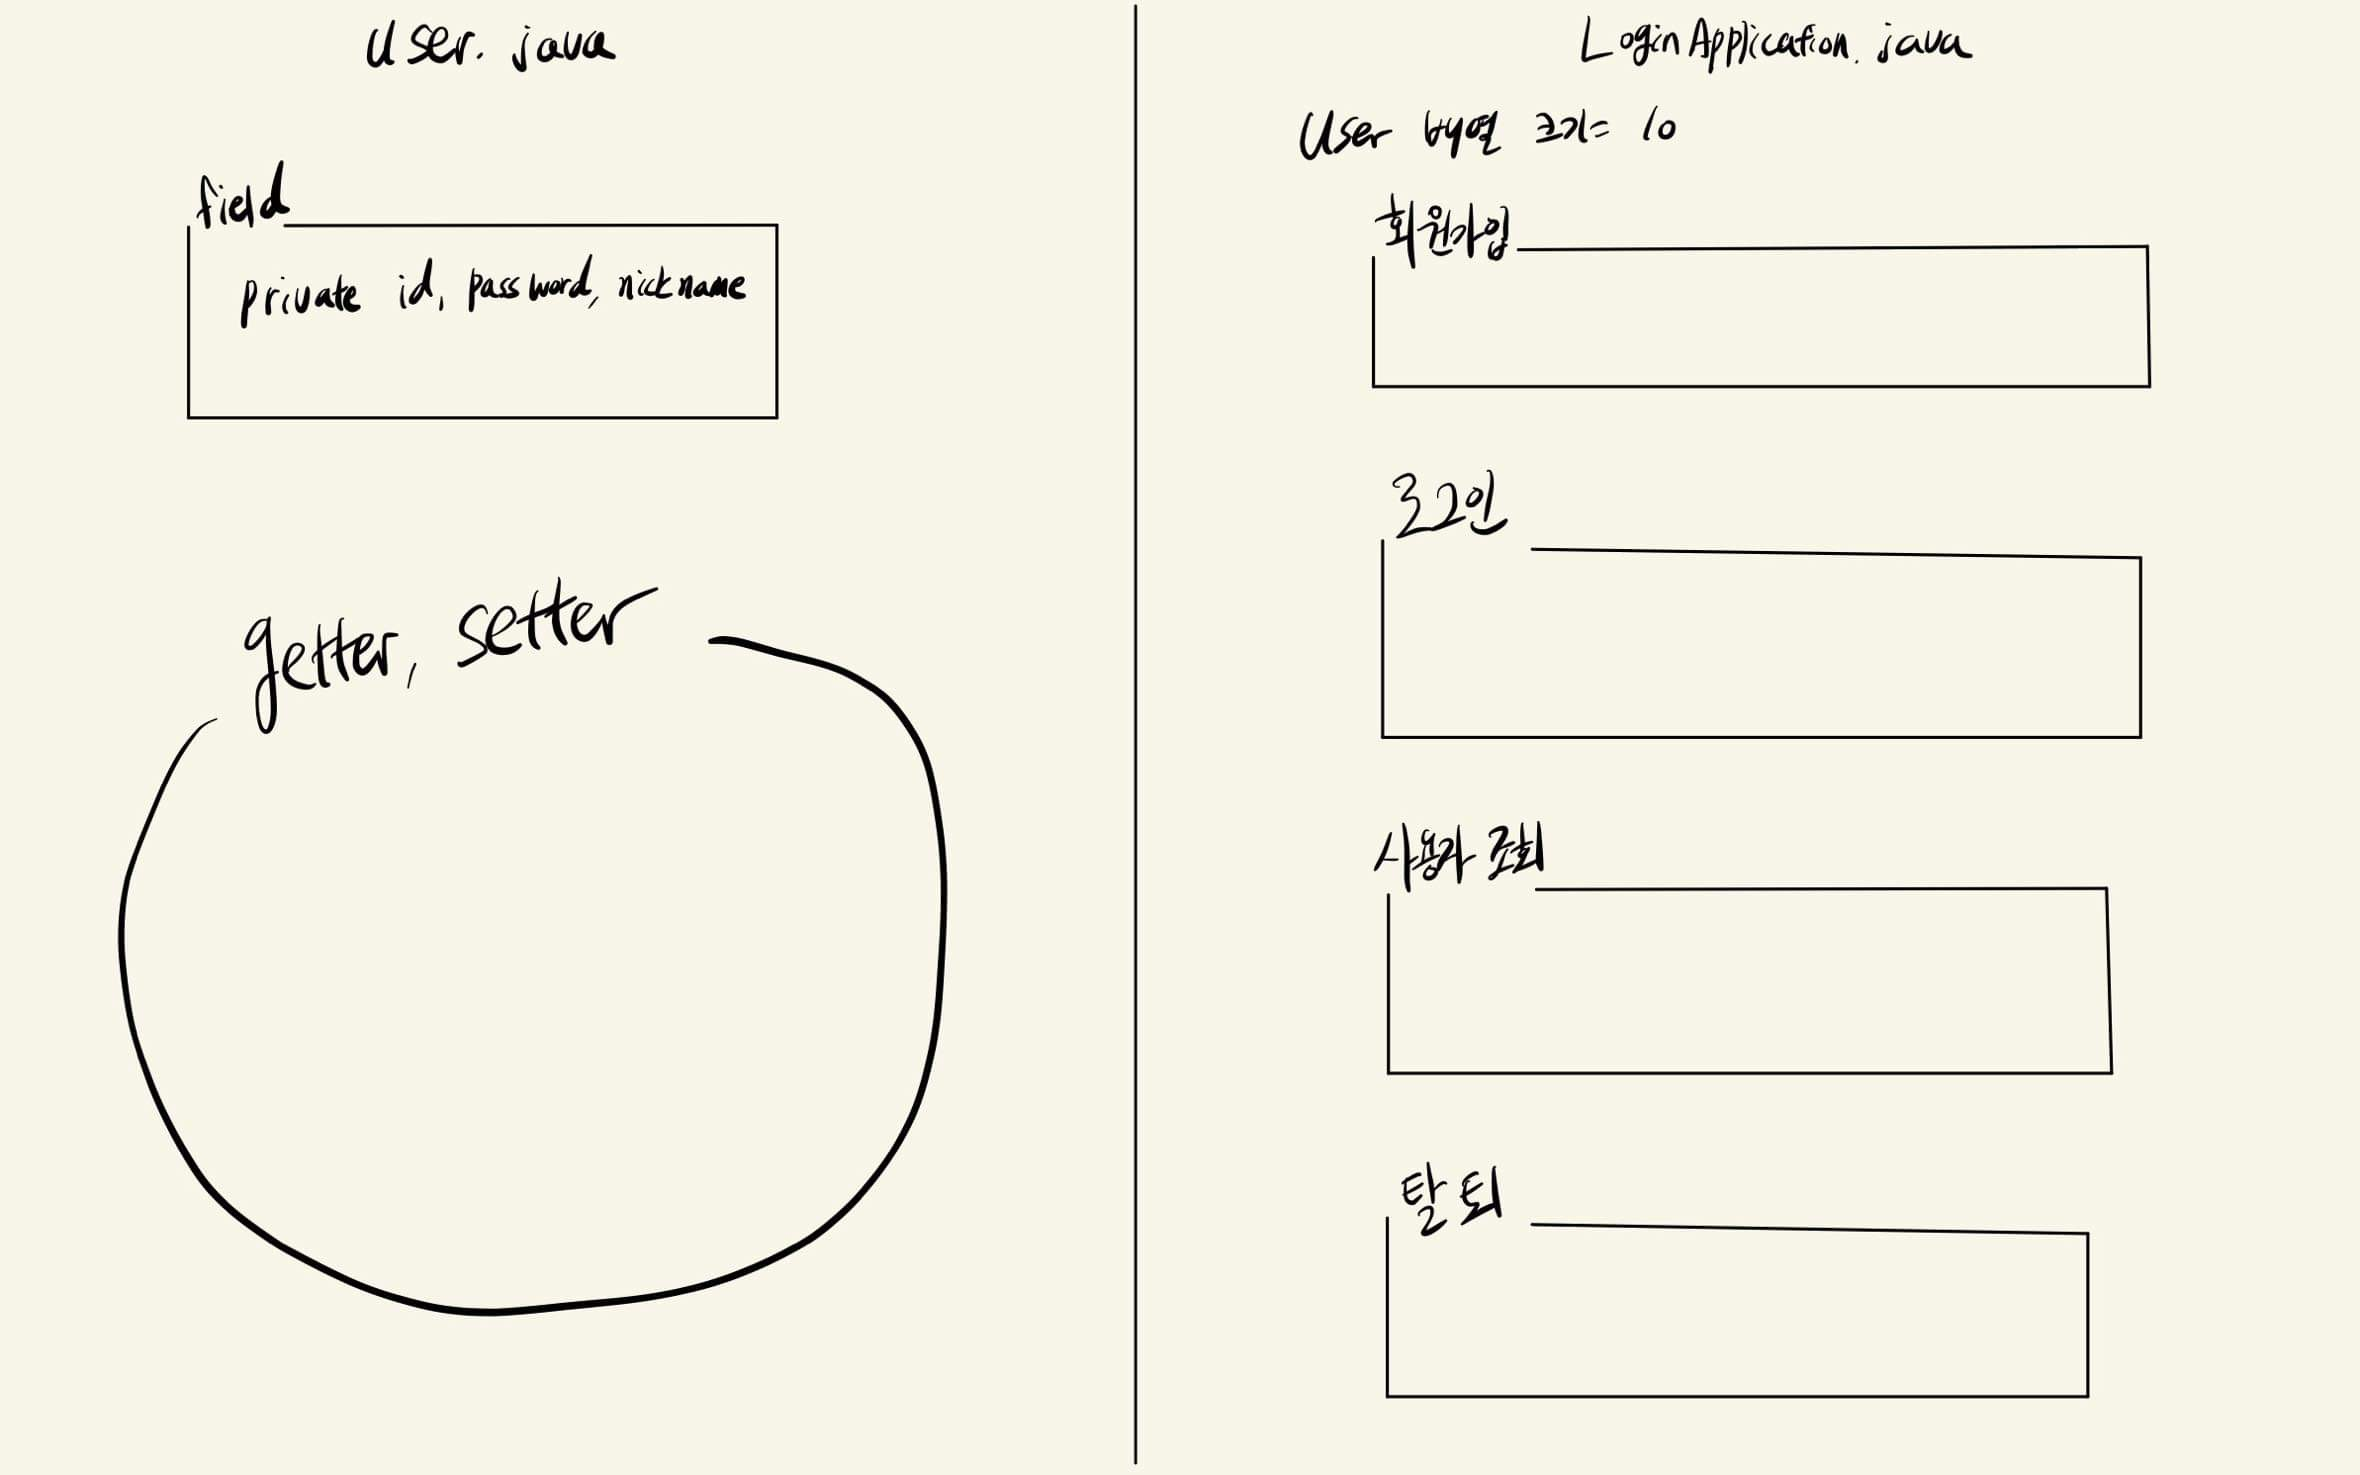 User. java
field
private id, password, nickname
getter, setter
LoginApplication. java
User 배열 크기= 10
회원가입
로그인
사용자 조회
탈퇴